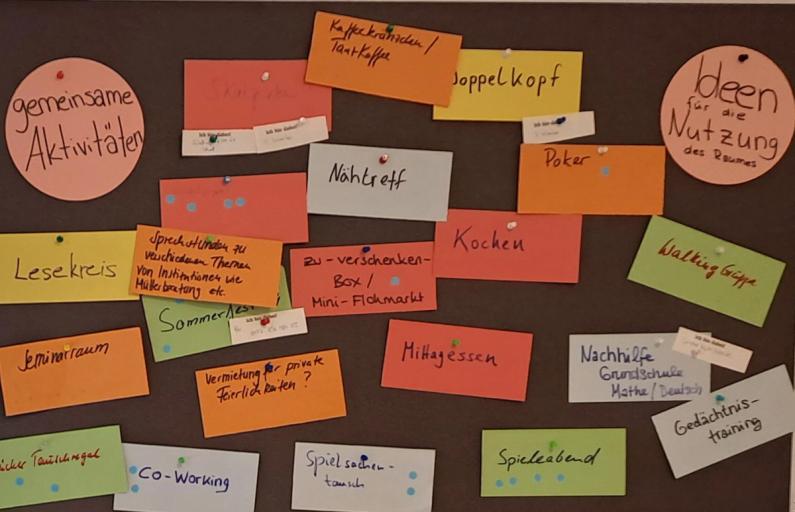 gemeinsame
Aktivitäten
Kaffeekränzchen /
TanzKaffee
Doppelkopf
Ideen
für die
Nutzung
des Raumes
Ich bin dabei!
Ich bin dabei!
Ich bin dabei!
Nähtreff
Poker
Lesekreis
Sprechstunden zu
verschiedenen Themen
von Institutionen wie
Mütterberatung etc.
zu-verschenken-
Box /
Mini-Flohmarkt
Kochen
Walking Gruppe
Sommerfest
Ich bin dabei!
Seminarraum
Vermietung für private
Feierlichkeiten ?
Mittagessen
Nachhilfe
Grundschule
Mathe / Deutsch
Ich bin dabei!
Gedächtnis-
training
Tauschregal
Co-Working
Spielsachen-
tausch
Spieleabend